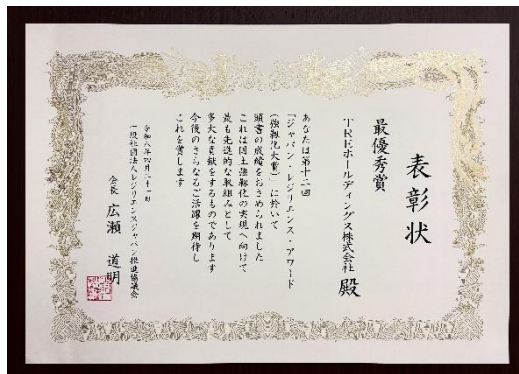 表彰状
最優秀賞
TREホールディングス株式会社 殿
あなたは第十二回
「ジャパン・レジリエンス・アワード
（強靱化大賞）」に於いて
頭書の成績をおさめられました
これは国土強靱化の実現へ向けて
最も先進的な取組みとして
多大な貢献をするものであります
今後のさらなるご活躍を期待し
これを賞します
令和八年四月二十一日
一般社団法人レジリエンスジャパン推進協議会
会長 広瀬 道明